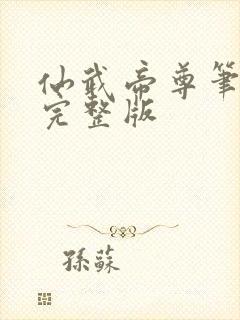 仙武帝尊筆
完整版
孫蘇